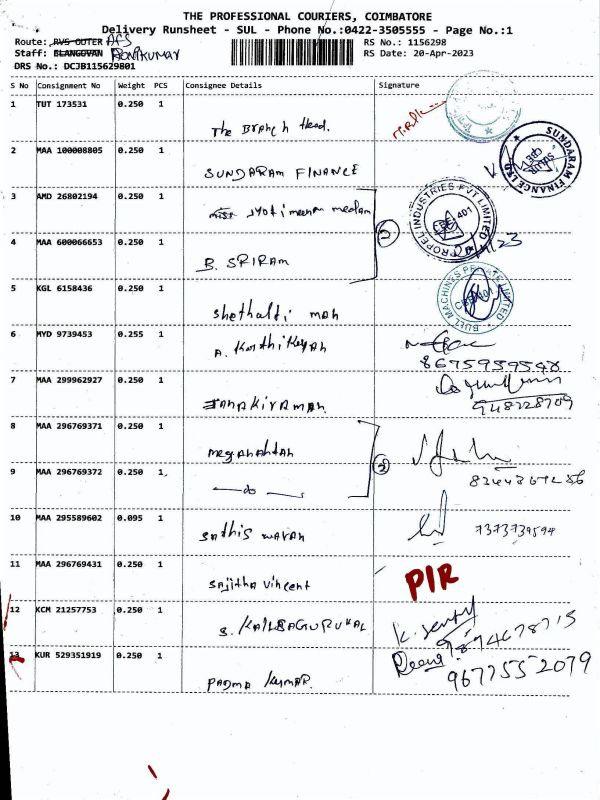 THE PROFESSIONAL COURIERS, COIMBATORE
Delivery Runsheet - SUL - Phone No.:0422-3505555 - Page No.:1
Route: RVS OUTER AFS
Staff: ELANGOVAN RONIKUMAR
RS No.: 1156298
RS Date: 20-Apr-2023
DRS No.: DCJB115629801
S No Consignment No Weight PCS Consignee Details Signature
1 TUT 173531 0.250 1
The Branch Head.
2 MAA 100008805 0.250 1
SUNDARAM FINANCE
SUNDARAM FINANCE LTD
3 AMD 26802194 0.250 1
PROPEL INDUSTRIES PVT LIMITED
4 MAA 600066653 0.250 1
B. SRIRAM
②
5 KGL 6158436 0.250 1
BULL MACHINES PRIVATE LIMITED
6 MYD 9739453 0.255 1
A. Karthikeyan
8675959548
7 MAA 299962927 0.250 1
JANAKIRAMAN.
948228909
8 MAA 296769371 0.250 1
Meganathan
②
9 MAA 296769372 0.250 1
—do—
10 MAA 295589602 0.095 1
Sathis waran
7373739594
11 MAA 296769431 0.250 1
Sajitha Vincent
PIR
12 KCM 21257753 0.250 1
S. KAILBAGURUKAL
9894678715
13 KUR 529351919 0.250 1
PADMA KUMAR.
9677552079